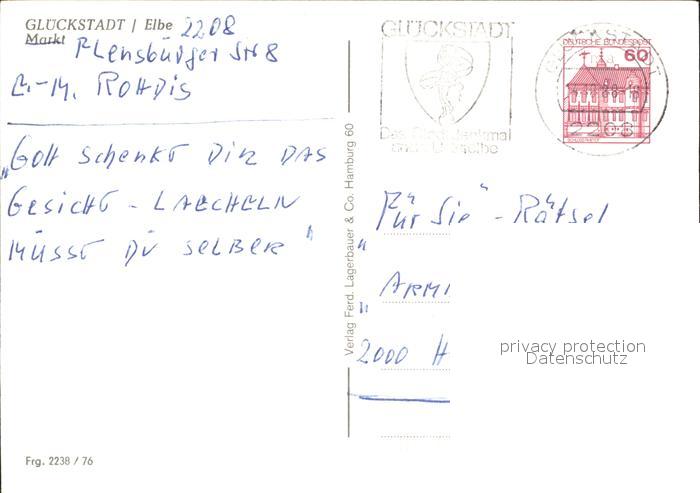 GLÜCKSTADT / Elbe 2208
Markt
Flensburger Str 8
E.-M. ROHDIS
"GOTT SCHENKT DIR DAS
GESICHT - LAECHELN
MÜSST DU SELBER"
Frg. 2238 / 76
Verlag Ferd. Lagerbauer & Co. Hamburg 60
GLÜCKSTADT
DEUTSCHE BUNDESPOST
60
2208
"Für Sie" - Rätsel
"ARMI
"
2000 H
privacy protection
Datenschutz